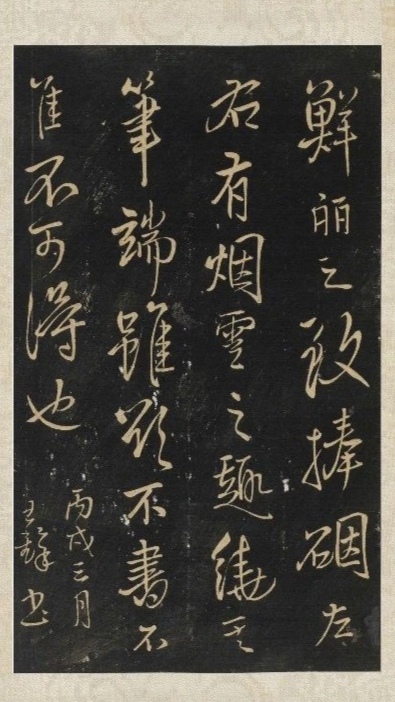 鮮丽之致捧硯左
右有烟雲之趣繞其
筆端雖欲不書不
惟不可得也
丙戌三月
王鐸書